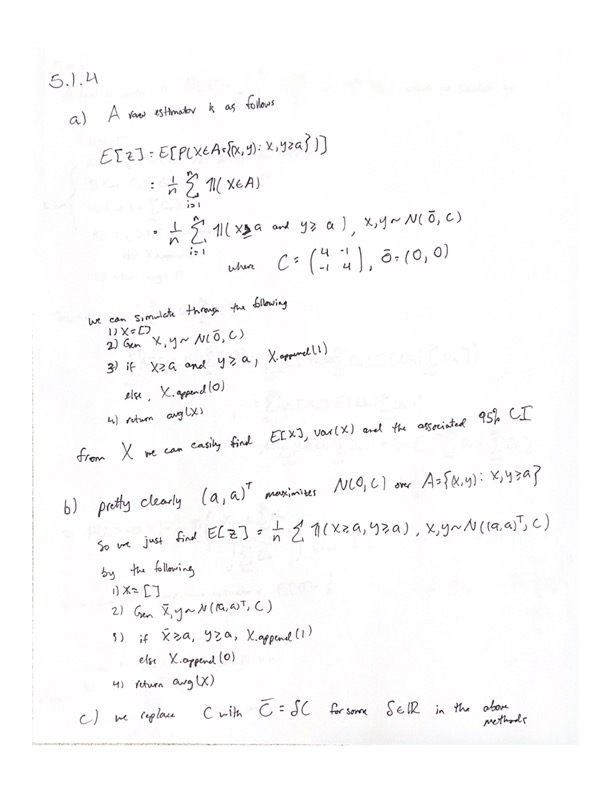 5.1.4
a) A raw estimator is as follows
E[z] = E[P(X∈A={(x,y): x,y≥a})]
= 1/n Σ_{i=1}^{n} 1(X∈A)
= 1/n Σ_{i=1}^{n} 1(x≥a and y≥a), x,y ~ N(0̄, C)
where C = (4 -1; -1 4), 0̄ = (0, 0)
we can simulate through the following
1) X = []
2) Gen x,y ~ N(0̄, C)
3) if x≥a and y≥a, X.append(1)
else, X.append(0)
4) return avg(X)
from X we can easily find E[X], var(X) and the associated 95% CI
b) pretty clearly (a, a)ᵀ maximizes N(0, C) over A={(x,y): x,y≥a}
So we just find E[z] = 1/n Σ 1(x≥a, y≥a), x,y ~ N((a,a)ᵀ, C)
by the following
1) X = []
2) Gen x̄,y ~ N((a,a)ᵀ, C)
3) if x̄≥a, y≥a, X.append(1)
else X.append(0)
4) return avg(X)
c) we replace C with C̄ = δC for some δ∈ℝ in the above
methods